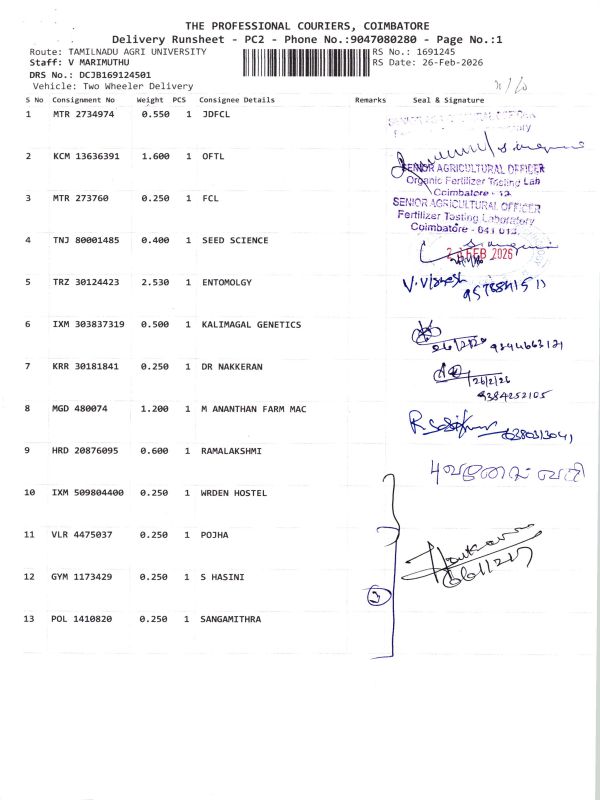 THE PROFESSIONAL COURIERS, COIMBATORE
Delivery Runsheet - PC2 - Phone No.:9047080280 - Page No.:1
Route: TAMILNADU AGRI UNIVERSITY RS No.: 1691245
Staff: V MARIMUTHU RS Date: 26-Feb-2026
DRS No.: DCJB169124501
Vehicle: Two Wheeler Delivery
S No Consignment No Weight PCS Consignee Details Remarks Seal & Signature
1 MTR 2734974 0.550 1 JDFCL
SENIOR AGRICULTURAL OFFICER
2 KCM 13636391 1.600 1 OFTL
SENIOR AGRICULTURAL OFFICER
Organic Fertilizer Testing Lab
Coimbatore - 13
3 MTR 273760 0.250 1 FCL
SENIOR AGRICULTURAL OFFICER
Fertilizer Testing Laboratory
Coimbatore - 641 013.
4 TNJ 80001485 0.400 1 SEED SCIENCE
FEB 2026
5 TRZ 30124423 2.530 1 ENTOMOLGY
6 IXM 303837319 0.500 1 KALIMAGAL GENETICS
7 KRR 30181841 0.250 1 DR NAKKERAN
26/2/26
9384252105
8 MGD 480074 1.200 1 M ANANTHAN FARM MAC
9 HRD 20876095 0.600 1 RAMALAKSHMI
10 IXM 509804400 0.250 1 WRDEN HOSTEL
11 VLR 4475037 0.250 1 POJHA
12 GYM 1173429 0.250 1 S HASINI
13 POL 1410820 0.250 1 SANGAMITHRA
3